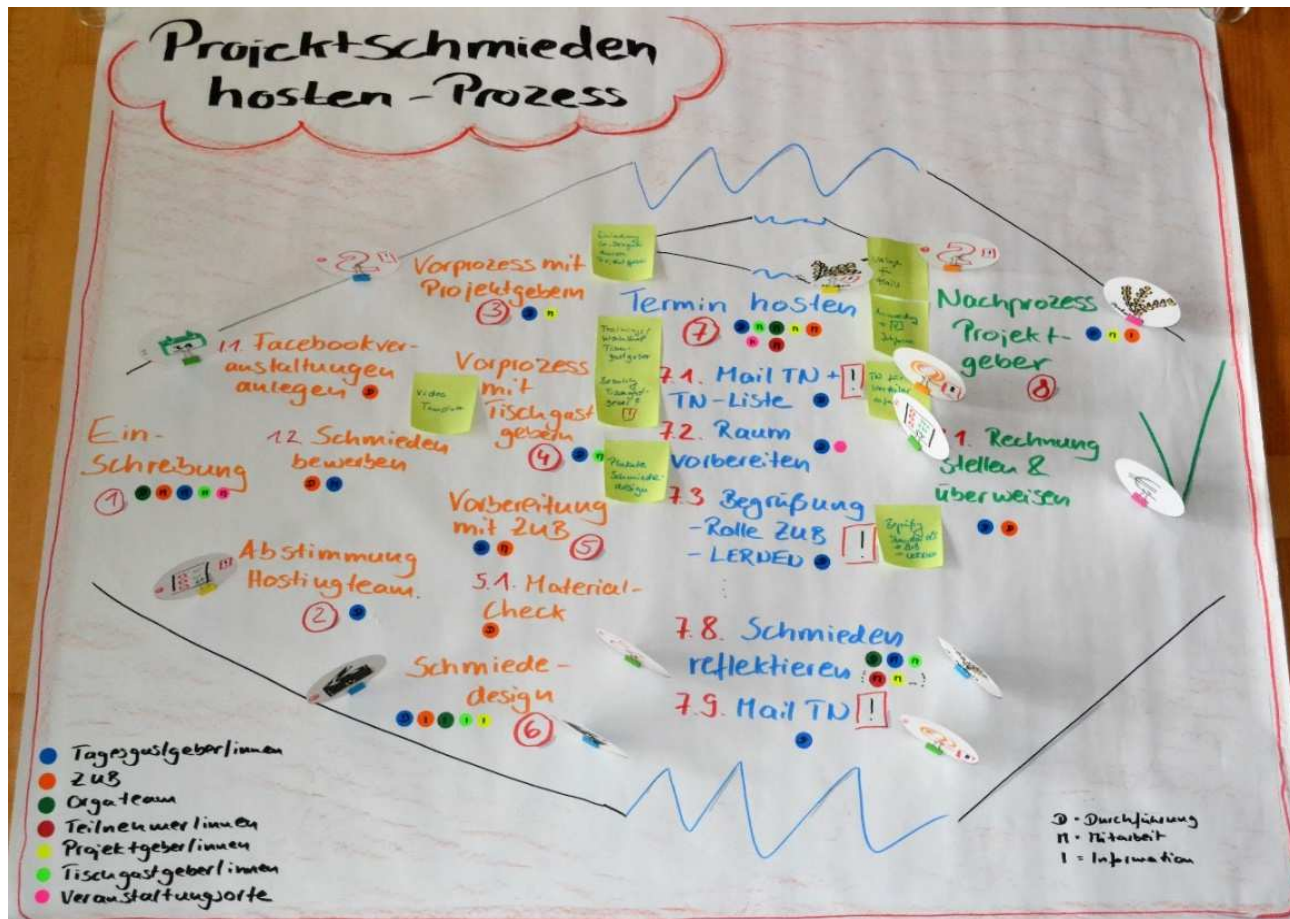 Projektschmieden
hosten - Prozess
Vorprozess mit
Projektgebern
3
1.1. Facebookver-
anstaltungen
anlegen
Ein-
schreibung
1
1.2. Schmieden
bewerben
Abstimmung
Hostingteam.
2
Video
Template
Vorprozess
mit
Tischgast
gebern
4
Vorbereitung
mit ZUB
5
5.1. Material-
Check
Schmiede-
design
6
Plakate
Schmiede-
design
Termin hosten
7
7.1. Mail TN +
TN-Liste
!
7.2. Raum
vorbereiten
7.3 Begrüßung
- Rolle ZUB
- LERNEN
!
7.8. Schmieden
reflektieren
7.9. Mail TN
!
Nachprozess
Projekt-
geber
8
1. Rechnung
stellen &
überweisen
Tagesgastgeber/innen
ZUB
Orgateam
Teilnehmer/innen
Projektgeber/innen
Tischgastgeber/innen
Veranstaltungsorte
D = Durchführung
M = Mitarbeit
I = Information